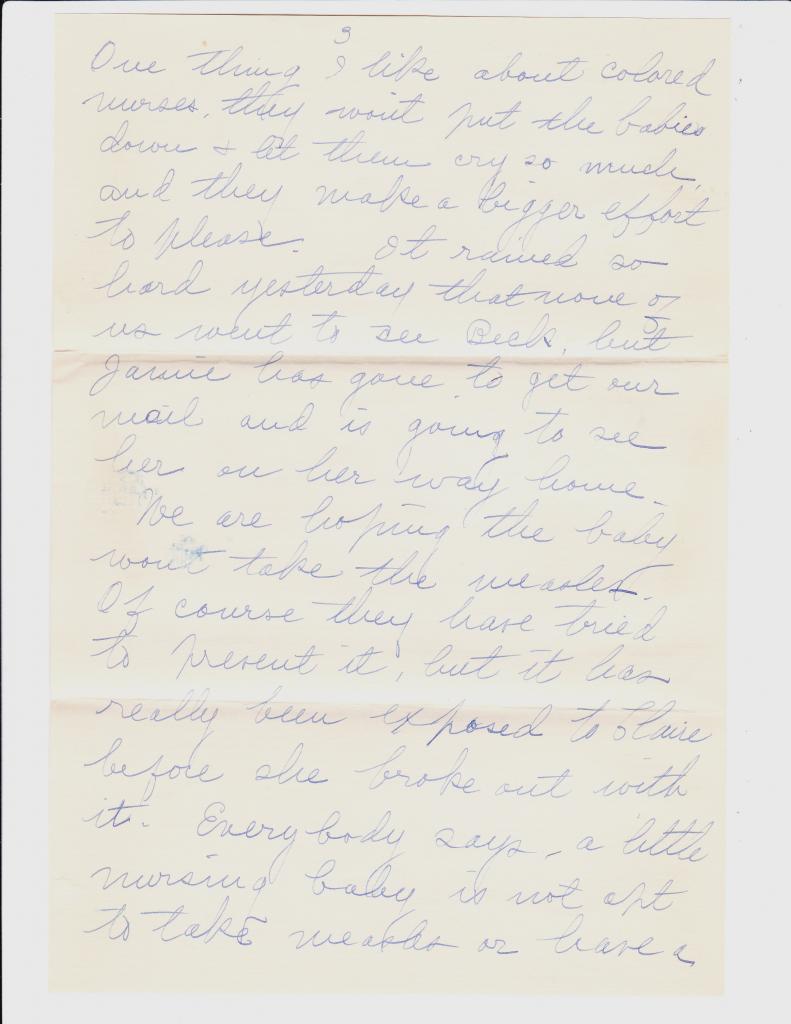 3
One thing I like about colored
nurses, they wont put the babies
down & let them cry so much,
and they make a bigger effort
to please. It rained so
hard yesterday that none of
us went to see Beck, but
Jamie has gone to get our
mail and is going to see
her on her way home.
We are hoping the baby
wont take the measles.
Of course they have tried
to prevent it, but it has
really been exposed to Claire
before she broke out with
it. Everybody says, a little
nursing baby is not apt
to take measles or have a